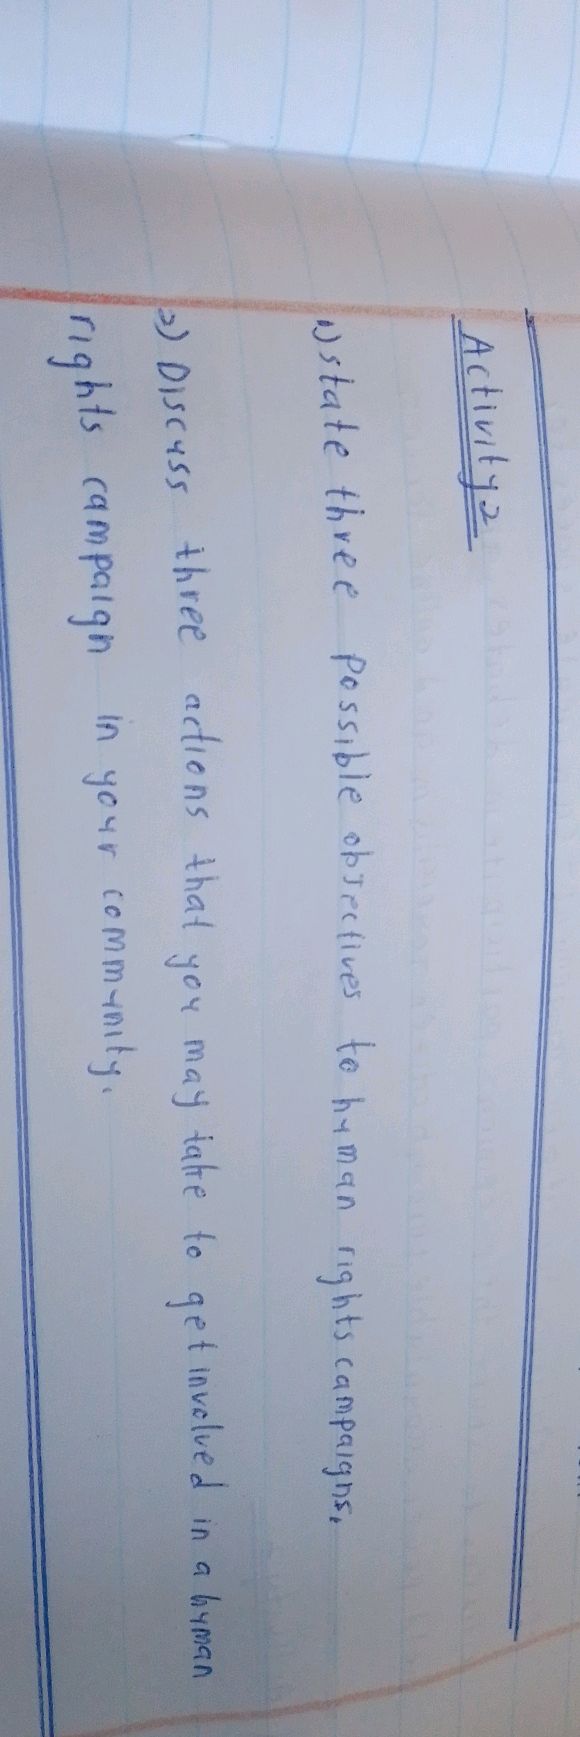 Activity 2
1) state three possible objectives to human rights campaigns.
2) Discuss three actions that you may take to get involved in a human
rights campaign in your community.